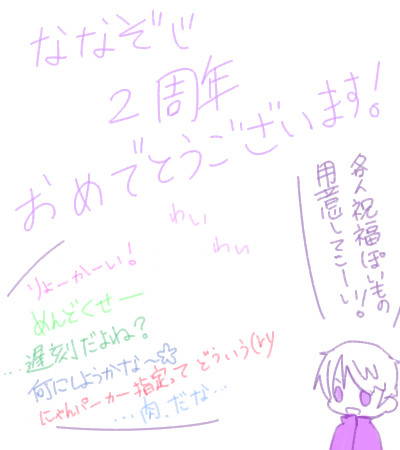 ななぞじ
2周年
おめでとうございます!
わい
わい
各人祝福ぽいもの
用意してこーい!。
りょーかーい!
めんどくせー
…遅刻だよね?
何にしようかな~☆
にゃんパーカー指定って どういう(ry
…肉、だな…